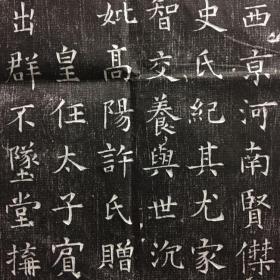 西京河南賢傑
史氏紀其尤家
智交養與世沉
皇任太子賓
妣高陽許氏贈
出群不墜堂搆